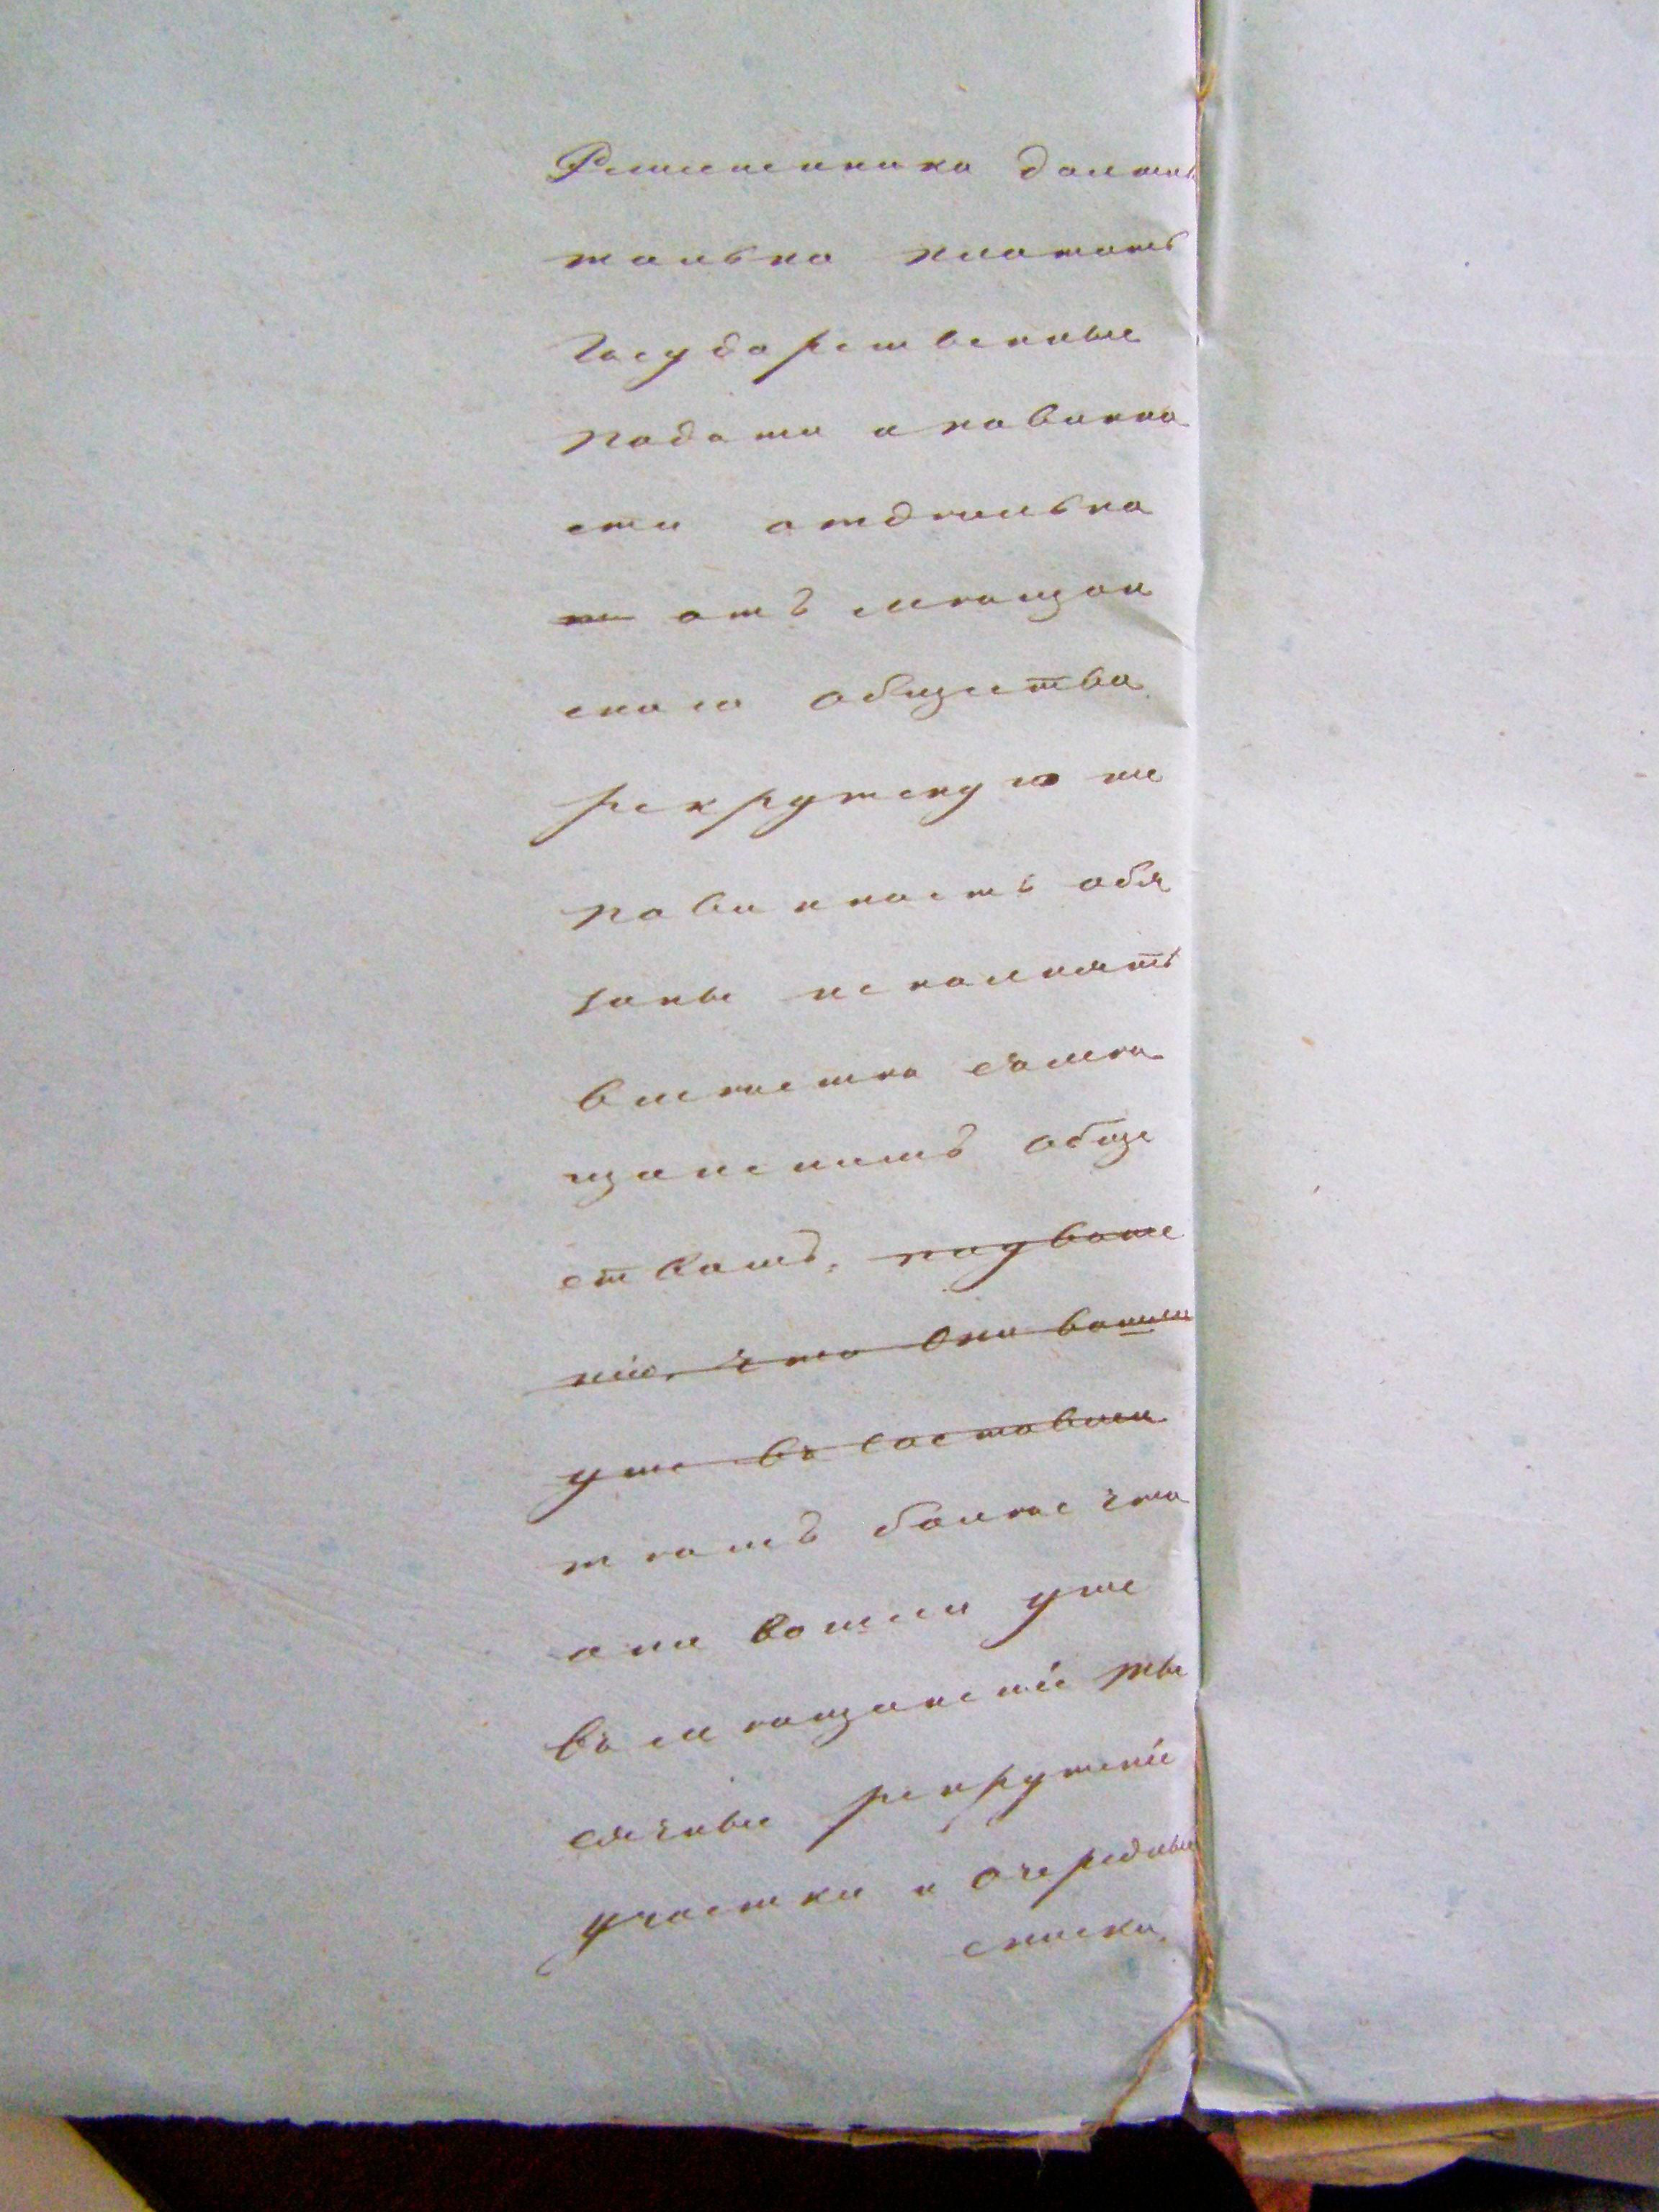 Ремесленики должны
только платить
Государственные
подати и повинно
сти отдѣльно
~~но~~ отъ мѣщан
скаго общества
рекрутскую же
повинность обя
заны исполнять
вмѣстѣ съ мѣ
щанскимъ обще
ствомъ, ~~поуваже~~
~~нію, что они вошли~~
~~уже въ составлен~~
тѣмъ болѣе что
они вошли уже
въ мѣщанскіе ты
сячные рекрутскіе
участки и очередные
списки.